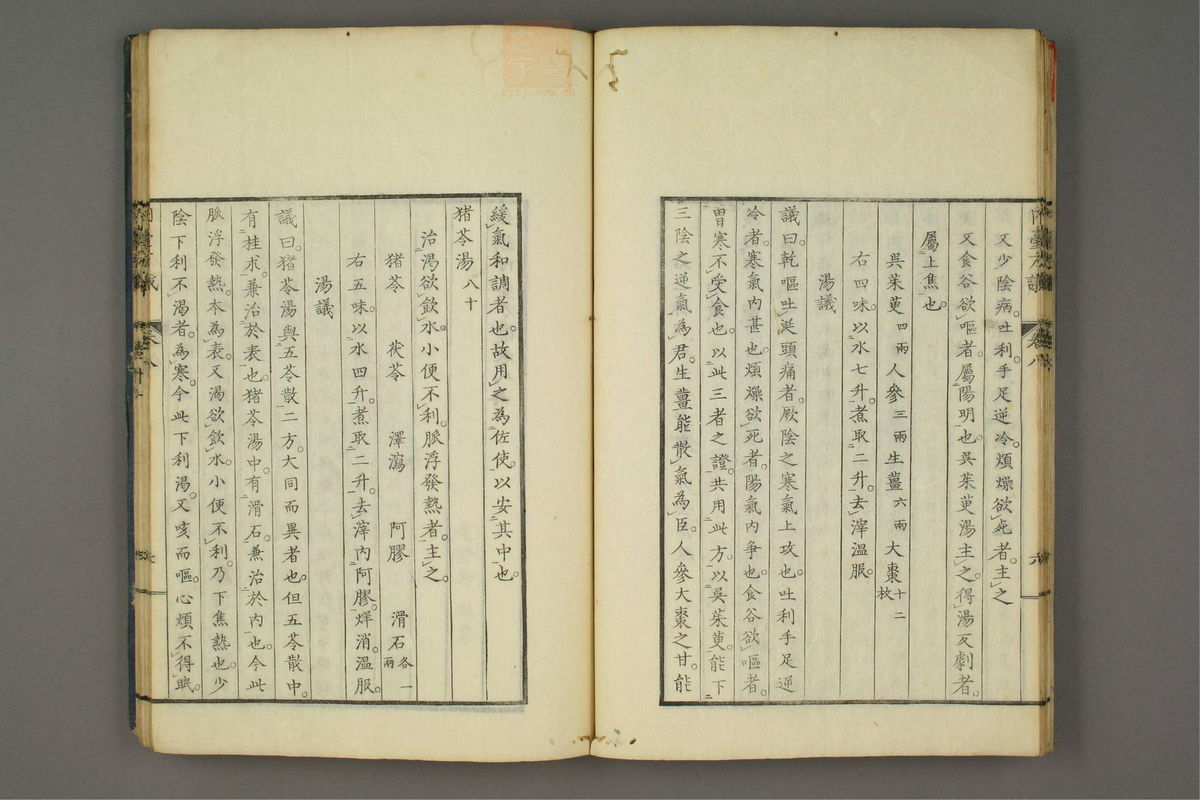 又少陰病。吐利。手足逆冷。煩燥欲死者。主之
又食谷欲嘔者。屬陽明也。吳茱萸湯主之。得湯反劇者。
屬上焦也。
吳茱萸四兩人參三兩生薑六兩大棗十二枚
右四味。以水七升。煮取二升。去滓溫服。
湯議
議曰。乾嘔吐涎頭痛者。厥陰之寒氣上攻也。吐利手足逆
冷者。寒氣內甚也。煩燥欲死者。陽氣內爭也。食谷欲嘔者。
胃寒不受食也。以此三者之證。共用此方。以吳茱萸。能下
三陰之逆氣。為君。生薑能散氣為臣。人參大棗之甘。能
緩氣和調者也。故用之為佐使。以安其中也
猪苓湯八十
治渴欲飲水。小便不利。脈浮發熱者。主之。
猪苓 茯苓 澤瀉 阿膠 滑石各一兩
右五味。以水四升。煮取二升。去滓內阿膠。烊消。溫服。
湯議
議曰。猪苓湯與五苓散二方。大同而異者也。但五苓散中。
有桂朮。兼治於表也。猪苓湯中。有滑石。兼治於內也。今此
脈浮發熱。本為表。又渴欲飲水。小便不利。乃下焦熱也。少
陰下利不渴者。為寒。今此下利渴。又咳而嘔。心煩不得眠。